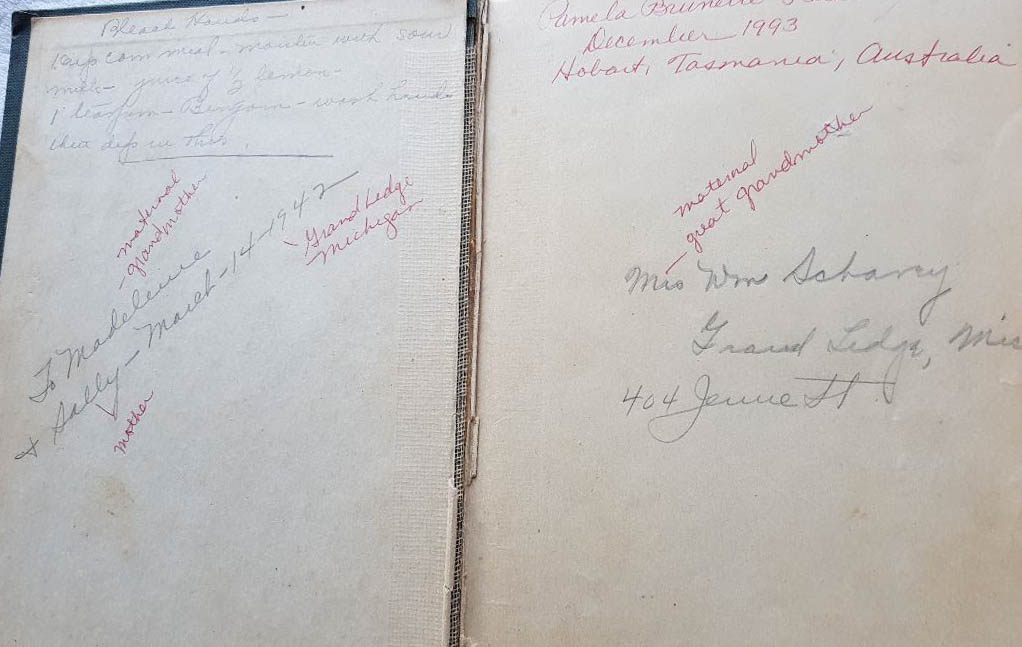 Bleach Hands -
1 cup corn meal - moisten with sour
milk - juice of ½ lemon -
1 teaspoon - Benzoin - wash hands
then dip in this.
maternal
- grandmother
To Madeleine
& Sally - March - 14 - 1942
- Grand Ledge
- Michigan
mother
Pamela Brunette
December 1993
Hobart, Tasmania, Australia
maternal
- great grandmother
Mrs Wm Scharvey
Grand Ledge,
404 Jenne St.